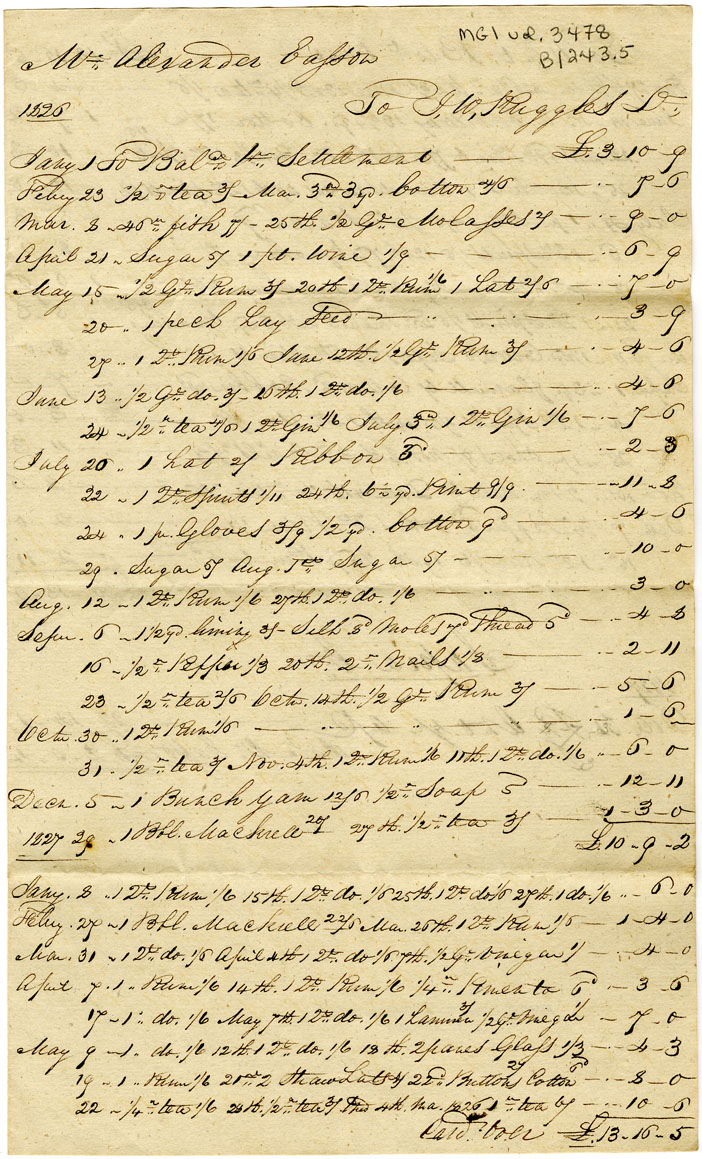 MG1 vol. 3478
B1243.5
Mr. Alexander Easson
1826 To J. W. Ruggles Dr.
Jany 1 To Balce. Settlement £. 3-10-9
Feby 23 1/2 tea 3/ Mar. 3rd 3 yd. Cotton 4/6 7-6
Mar. 8 fish 7/ 25th. 1/2 Gn. Molasses 2/ 9-0
April 21 Sugar 5/ 1 pt. Wine 1/9 6-9
May 15 1/2 Gn Rum 3/ 20th 1 Qt. Rum 1/6 1 Hat 2/6 7-0
20 " 1 peck Hay Seed 3-9
27 " 1 Qt. Rum 1/6 June 12th. 1/2 Gn. Rum 3/ 4-6
June 13 1/2 Gn do. 3/ 16th. 1 Qt. do. 1/6 4-6
24 1/2 tea 4/6 1 Qt Gin 1/6 July 3d 1 Qt Gin 1/6 7-6
July 20 " 1 Hat 2/ Ribbon 3d 2-3
22 1 Qt Spirits 1/11 24th. 6 yd. Print 9/9 11-8
24 1 pr. Gloves 3/9 1/2 yd. Cotton 9d 4-6
29 Sugar 5/ Aug. Sugar 5/ 10-0
Aug. 12 1 Qt. Rum 1/6 27th 1 Qt. do. 1/6 3-0
Sepr. 6 1 1/2 yd. lining 3/ 8d Moles 7d thread 5d 4-8
16 1/2 Pepper 1/3 20th. 2 Nails 1/8 2-11
23 1/2 tea 2/6 Octr. 14th. 1/2 Gn. Rum 3/ 5-6
Octr. 30 " 1 Qt Rum 1/6 1-6
31 1/2 tea 3/ Nov. 4th. 1 Qt Rum 1/6 11th. 1 Qt. do. 1/6 6-0
Decr. 5 1 Bunch yarn 12/6 1/2 Soap 5 12-11
1827 29 1 Bbl. Mackrell 20/ 27th. 1/2 tea 3/ 1-3-0
£. 10-9-2
Jany. 8 " 1 Qt. Rum 1/6 15th. 1 Qt. do. 1/6 25th. 1 Qt. do 1/6 27th. 1 do. 1/6 6-0
Feby. 27 1 Bbl. Mackrell 22/6 Mar. 26th. 1 Qt. Rum 1/6 1-4-0
Mar. 31 1 Qt do. 1/6 April 4th 1 Qt. do 1/6 7th. 1/2 Gn. Vinegar 1/ 4-0
April 7. 1 " Rum 1/6 14th. 1 Qt. Rum 1/6 1/4 Pimento 6d 3-6
17 1 " do. 1/6 May 7th. 1 Qt. do. 1/6 1 3/ 1/2 Gn. Vinegar 1/ 7-0
May 9 1 " do. 1/6 12th. 1 Qt. do. 1/6 18th. 2 panes Glass 1/3 4-3
19 " 1 " Rum 1/6 21st 2 Straw Hats 4/ 22d Button 2d Cotton 6d 8-0
22 1/4 tea 1/6 28th. 1/2 tea 3/ 4th. Ma. 1826 1 tea 6/ 10-6
Card. Over £. 13-16-5